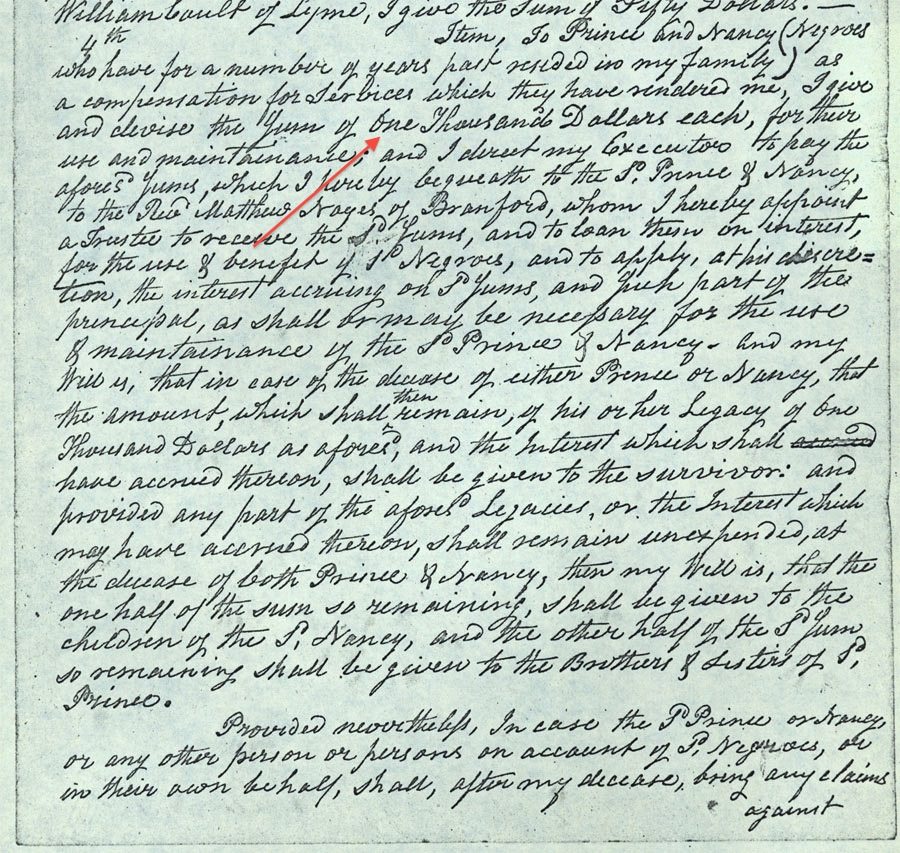 William Coult of Lyme, I give the Sum of Fifty Dollars. —
4th Item, To Prince and Nancy (Negroes
who have for a number of years past resided in my family) as
a compensation for Services which they have rendered me, I give
and devise the Sum of One Thousand Dollars each, for their
use and maintainance; and I direct my Executor to pay the
aforesd Sums, which I hereby bequeath to the Sd. Prince & Nancy,
to the Revd Matthew Noyes, of Branford, whom I hereby appoint
a Trustee to receive the Sd Sums, and to loan them on interest,
for the use & benefit of Sd Negroes, and to apply, at his discre=
tion, the interest accruing on Sd Sums, and Such part of the
principal, as shall or may be necessary for the use
& maintainance of the Sd Prince & Nancy - and my
Will is, that in case of the decease of either Prince or Nancy, that
the amount, which shall then remain, of his or her Legacy of One
Thousand Dollars as aforesd, and the Interest which shall accrued
have accrued thereon, shall be given to the survivor: and
provided any part of the aforesd Legacies, or the Interest which
may have accrued thereon, shall remain unexpended, at
the decease of both Prince & Nancy, then my Will is, that the
one half of the sum so remaining, shall be given to the
children of the Sd. Nancy, and the other half of the Sd Sum
so remaining shall be given to the Brothers & Sisters of Sd.
Prince.
Provided nevertheless, In case the Sd Prince or Nancy,
or any other person or persons on account of Sd. Negroes, or
in their own behalf, shall, after my decease, bring any claims
against